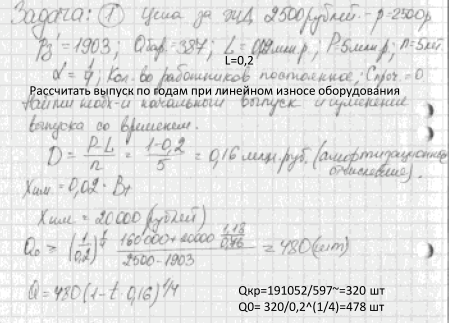 Задача: ① Цена за ед. 2500 рублей. - p=2500р
= 1903; Qбар.=387; L = 0,2 млн.р; P=5 млн.р; n=5 лет.
L=0,2
α = 1/4; Кол-во работников постоянное; Спроч.=0
Рассчитать выпуск по годам при линейном износе оборудования
Найти необх-й начальный выпуск и изменение
выпуска со временем.
D = P-L/n = 1-0,2/5 = 0,16 млн.руб. (амортизационное
отчисление).
Xим.=0,02 · Вт
Xим. = 20000 (рублей)
Q₀ > (1/0,2)^¼ · 160000+20000 / 2500-1903 = 480 (шт)
Q=480(1-t·0,16)^1/4
Qкр=191052/597~=320 шт
Q0= 320/0,2^(1/4)=478 шт